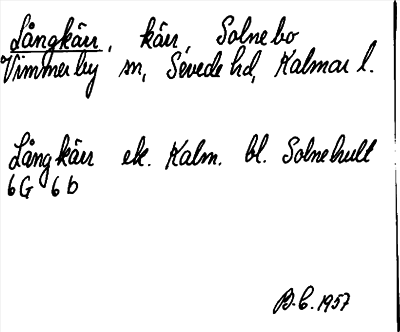 Långkärr, kärr, Solnebo
Vimmerby sn, Sevede hd, Kalmar l.
Långkärr ek. Kalm. bl. Solnehult
6G 6b
B.C. 1957